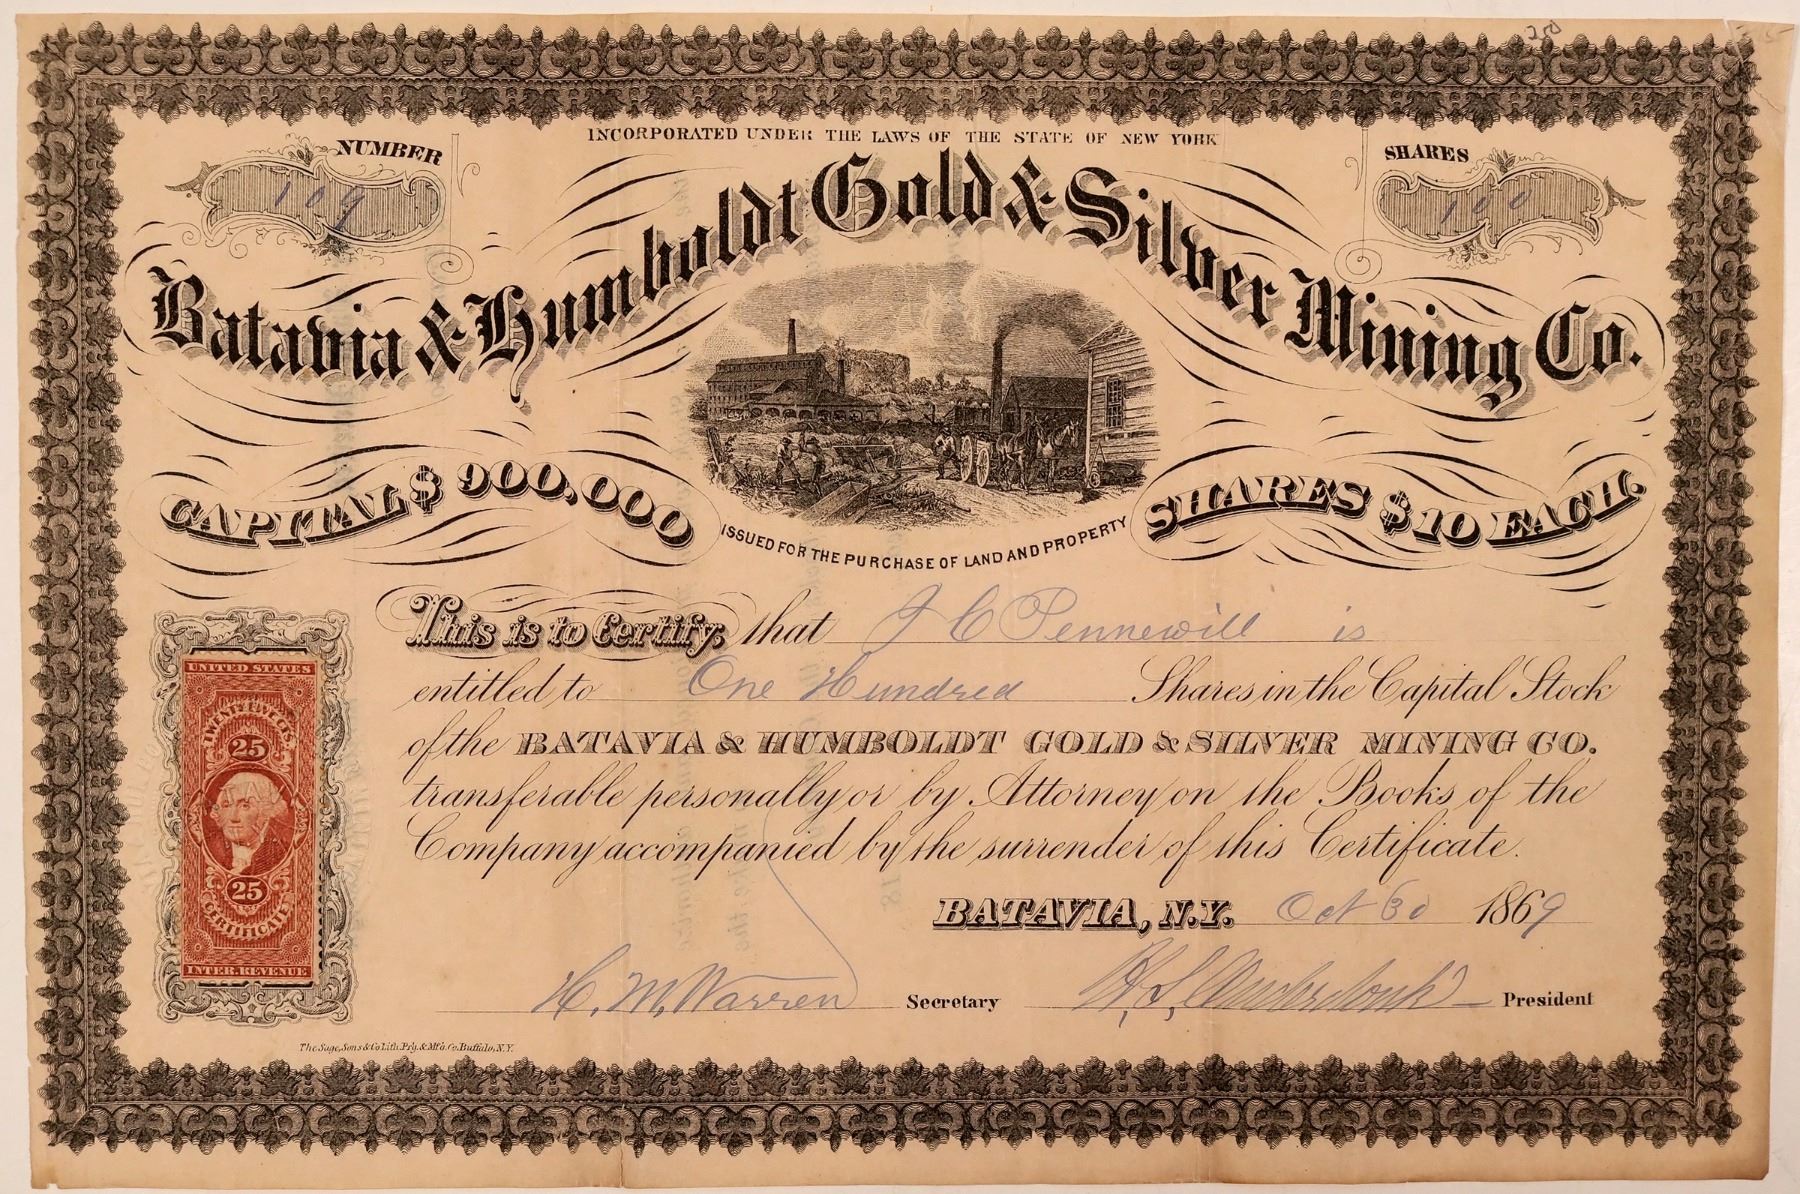 250
INCORPORATED UNDER THE LAWS OF THE STATE OF NEW YORK
NUMBER
109
SHARES
100
Batavia & Humboldt Gold & Silver Mining Co.
CAPITAL $900,000
SHARES $10 EACH.
ISSUED FOR THE PURCHASE OF LAND AND PROPERTY
This is to Certify, that J C Pennewill is
entitled to One Hundred Shares in the Capital Stock
of the BATAVIA & HUMBOLDT GOLD & SILVER MINING CO.
transferable personally or by Attorney on the Books of the
Company accompanied by the surrender of this Certificate.
BATAVIA, N.Y. Oct 30 1869
H. M. Warren Secretary
President
UNITED STATES
TWENTY FIVE CTS.
25
25
CERTIFICATE
INTER. REVENUE
The Sage, Sons & Co Lith. Prg. & Mf'g. Co. Buffalo, N.Y.